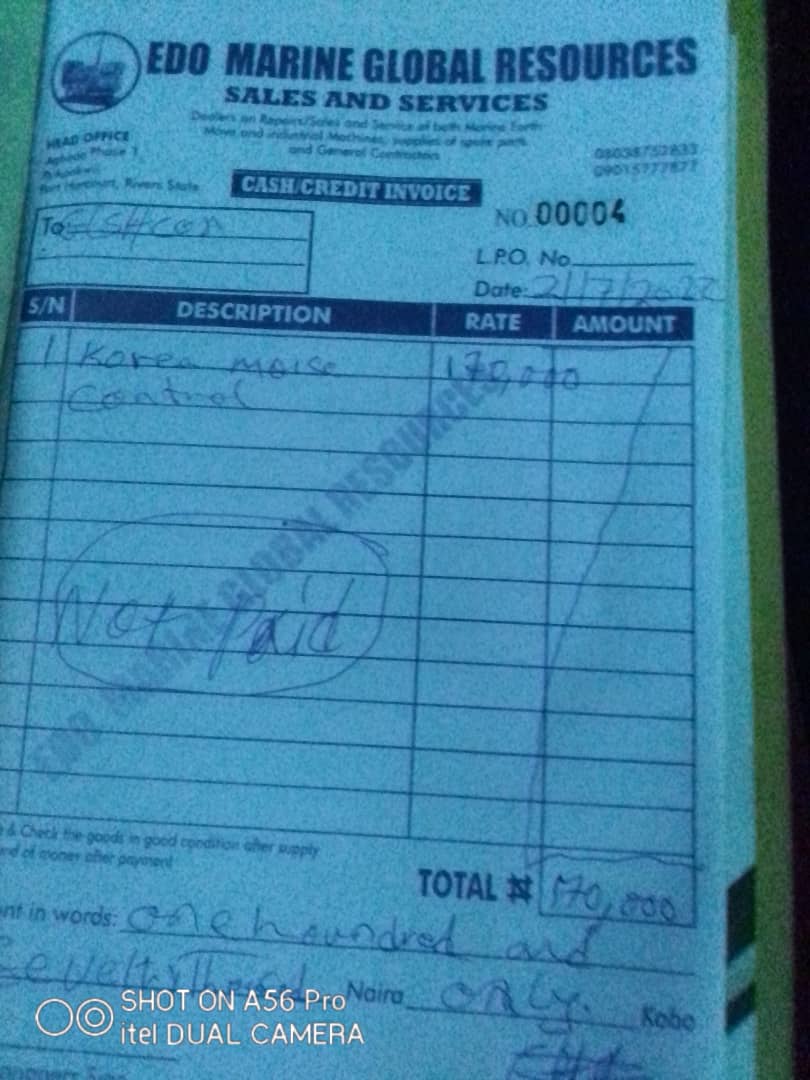 EDO MARINE GLOBAL RESOURCES
SALES AND SERVICES
Dealers on Repairs/Sales and Service of both Marine Earth
Move and industrial Machines, supplies of spare parts
and General Contractors
HEAD OFFICE
Phase 1
Port Harcourt, Rivers State
08038752833
09015777877
CASH/CREDIT INVOICE
NO. 00004
To
L.P.O. No.
Date: 21/7/2022
S/N DESCRIPTION RATE AMOUNT
1 Korea moise 170,000
Control
EDO MARINE GLOBAL RESOURCES
Not Paid
& Check the goods in good condition after supply
of money after payment
TOTAL ₦ 170,000
in words: one houndred and
Naira only. Kobo
SHOT ON A56 Pro
itel DUAL CAMERA